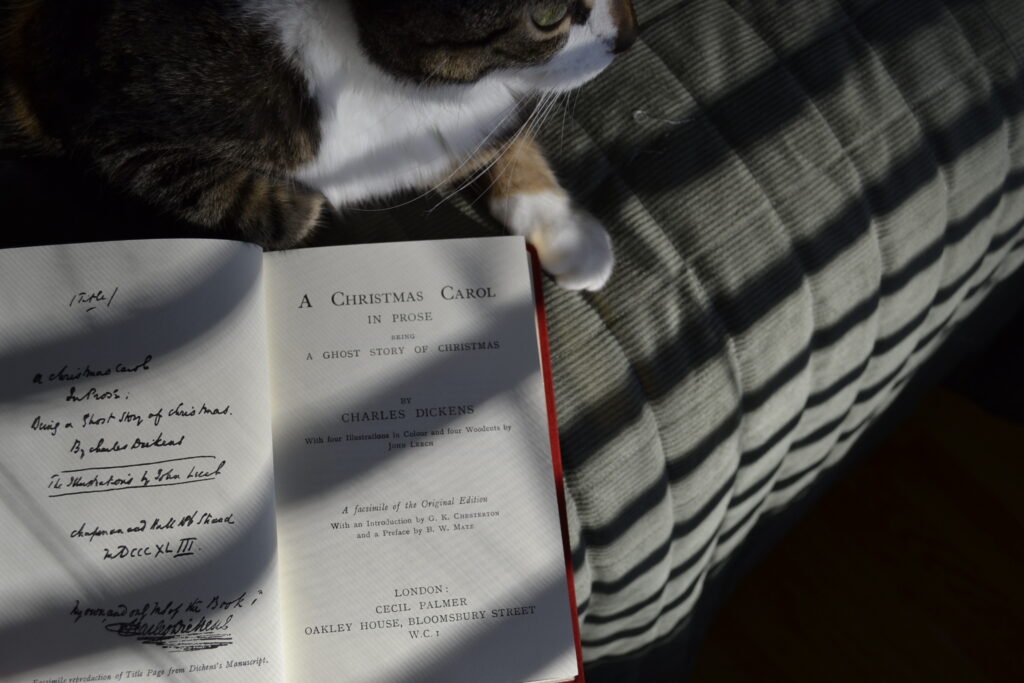 (Title)
A Christmas Carol
In Prose;
Being a Ghost Story of Christmas.
By Charles Dickens
The Illustrations by John Leech
Chapman and Hall 186 Strand
MDCCCXLIII.
My own, and only MS of the Book
Charles Dickens
Facsimile reproduction of Title Page from Dickens's Manuscript.
A Christmas Carol
IN PROSE
BEING
A GHOST STORY OF CHRISTMAS
BY
CHARLES DICKENS
With four Illustrations in Colour and four Woodcuts by
John Leech
A facsimile of the Original Edition
With an Introduction by G. K. Chesterton
and a Preface by B. W. Matz
LONDON:
CECIL PALMER
OAKLEY HOUSE, BLOOMSBURY STREET
W.C. 1